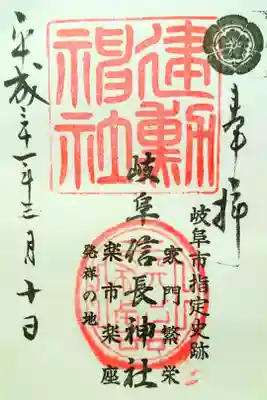 奉拝
建勲神社
岐阜市指定史跡
岐阜信長神社
家門繁栄
楽市楽座
発祥の地
平成三十一年三月十日